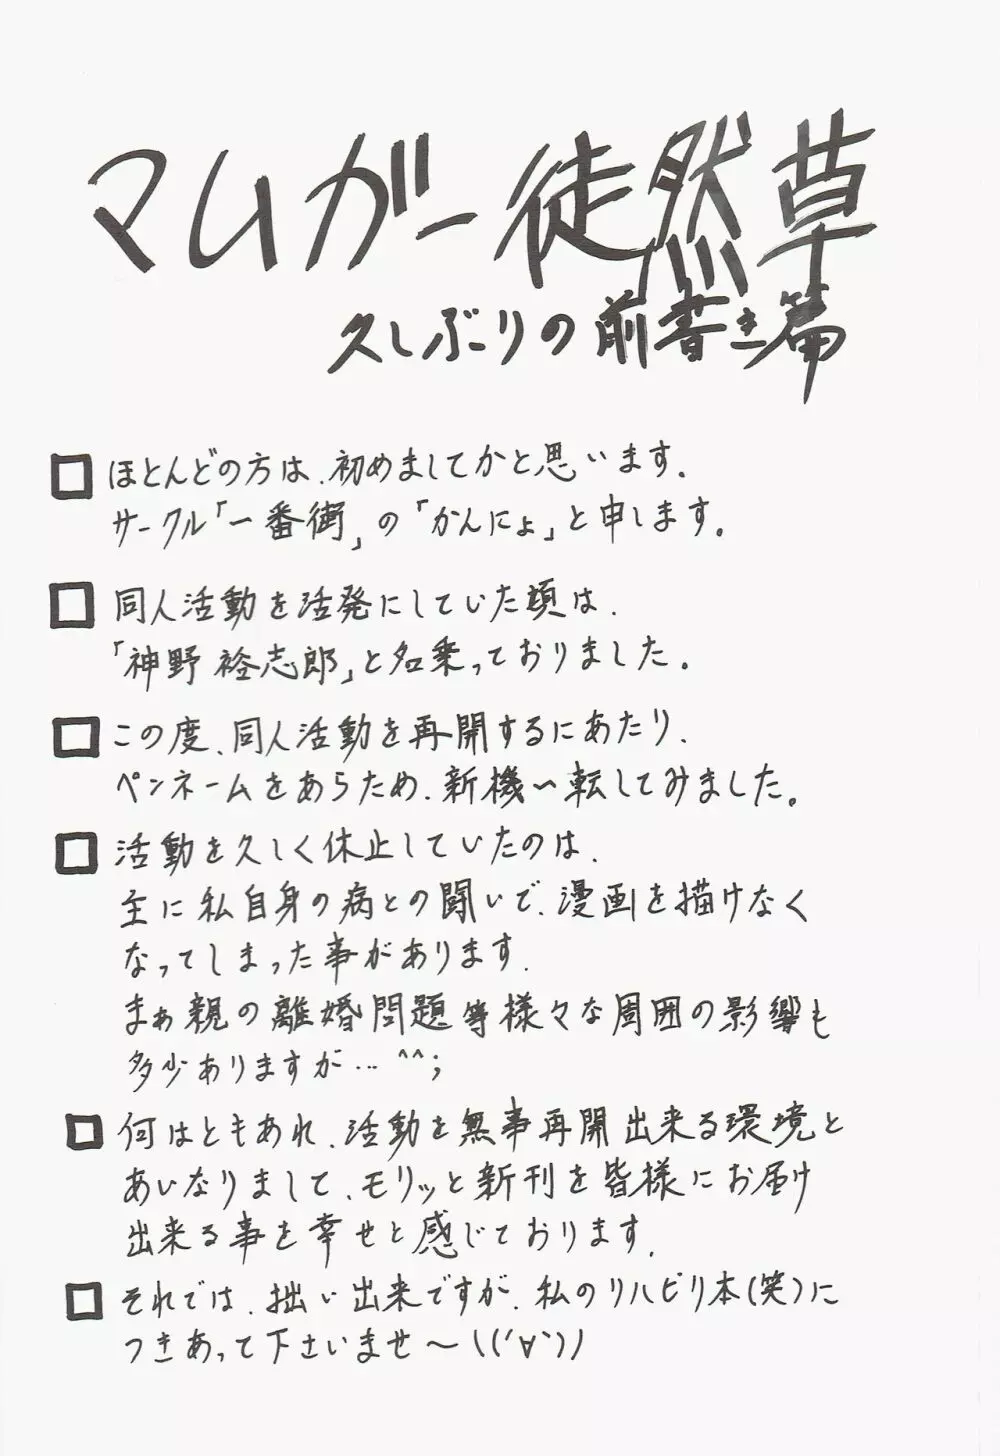 マムガー徒然草
久しぶりの前書き篇
□ほとんどの方は、初めましてかと思います。
サークル「一番街」の「かんにょ」と申します。
□同人活動を活発にしていた頃は、
「神野裕志郎」と名乗っておりました。
□この度、同人活動を再開するにあたり、
ペンネームをあらため、新機一転してみました。
□活動を久しく休止していたのは、
主に私自身の病との闘いで、漫画を描けなく
なってしまった事があります。
まぁ親の離婚問題等様々な周囲の影響も
多少ありますが…^^;
□何はともあれ、活動を無事再開出来る環境と
あいなりまして、モリッと新刊を皆様にお届け
出来る事を幸せと感じております。
□それでは、拙い出来ですが、私のリハビリ本(笑)に
つきあって下さいませ〜\(('∀`)ﾉ